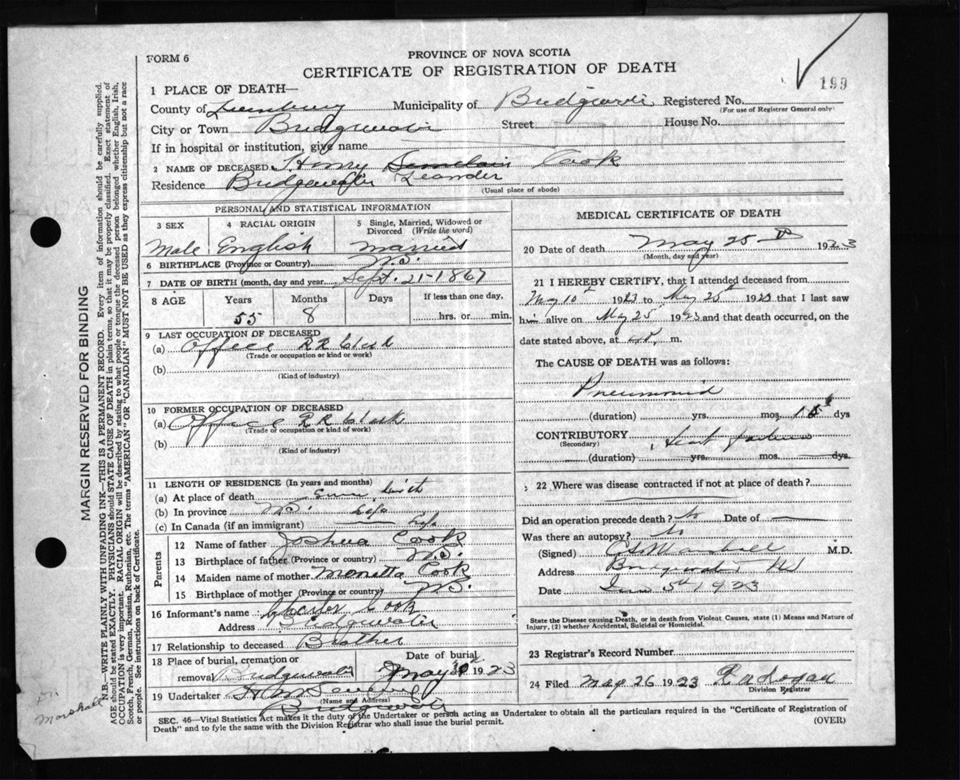 FORM 6
PROVINCE OF NOVA SCOTIA
CERTIFICATE OF REGISTRATION OF DEATH
199
1 PLACE OF DEATH—
County of Lunenburg Municipality of Bridgewater Registered No.
(For use of Registrar General only)
City or Town Bridgewater Street House No.
If in hospital or institution, give name
2 NAME OF DECEASED Henry Cook
Leander
Residence Bridgewater
(Usual place of abode)
PERSONAL AND STATISTICAL INFORMATION
3 SEX 4 RACIAL ORIGIN 5 Single, Married, Widowed or Divorced (Write the word)
Male English Married
6 BIRTHPLACE (Province or Country) N.S.
7 DATE OF BIRTH (month, day and year) Sept. 21-1867
8 AGE Years Months Days If less than one day,
55 8 hrs. or min.
9 LAST OCCUPATION OF DECEASED
(a) Office RR Clerk
(Trade or occupation or kind or work)
(b)
(Kind of industry)
10 FORMER OCCUPATION OF DECEASED
(a) Office RR Clerk
(Trade or occupation or kind or work)
(b)
(Kind of industry)
11 LENGTH OF RESIDENCE (In years and months)
(a) At place of death since birth
(b) In province N.S. Life
(c) In Canada (if an immigrant) Life
Parents
12 Name of father Joshua Cook
13 Birthplace of father (Province or country) N.S.
14 Maiden name of mother Cook
15 Birthplace of mother (Province or country) N.S.
16 Informant's name Cook
Address Bridgewater
17 Relationship to deceased Brother
18 Place of burial, cremation or removal Bridgewater Date of burial May 1923
19 Undertaker
(Name and Address)
Bridgewater
MEDICAL CERTIFICATE OF DEATH
20 Date of death May 25th 1923
(Month, day and year)
21 I HEREBY CERTIFY, that I attended deceased from
May 10th 1923 to May 25th 1923 that I last saw
him alive on May 25 1923 and that death occurred, on the
date stated above, at m.
The CAUSE OF DEATH was as follows:
Pneumonia
(duration) yrs. mos. 15 dys
CONTRIBUTORY
(Secondary)
(duration) yrs. mos. dys.
22 Where was disease contracted if not at place of death?
Did an operation precede death? No Date of
Was there an autopsy? No
(Signed) Marshall M.D.
Address Bridgewater NS
Date 1923
State the Disease causing Death, or in death from Violent Causes, state (1) Means and Nature of
Injury, (2) whether Accidental, Suicidal or Homicidal.
23 Registrar's Record Number
24 Filed May 26 1923
Division Registrar
SEC. 46—Vital Statistics Act makes it the duty of the Undertaker or person acting as Undertaker to obtain all the particulars required in the "Certificate of Registration of
Death" and to fyle the same with the Division Registrar who shall issue the burial permit. (OVER)
MARGIN RESERVED FOR BINDING
N.B.—WRITE PLAINLY WITH UNFADING INK—THIS IS A PERMANENT RECORD. Every item of information should be carefully supplied.
AGE should be stated EXACTLY. PHYSICIANS should STATE CAUSE OF DEATH in plain terms, so that it may be properly classified. Exact statement of
OCCUPATION is very important. RACIAL ORIGIN will be described by stating to what people or tongue the deceased person belonged whether English, Irish,
Scotch, French, German, Russian, Ruthenian, etc. The terms "AMERICAN" OR "CANADIAN" MUST NOT BE USED as they express citizenship but not a race
or people. See instructions on back of Certificate.
Marshall